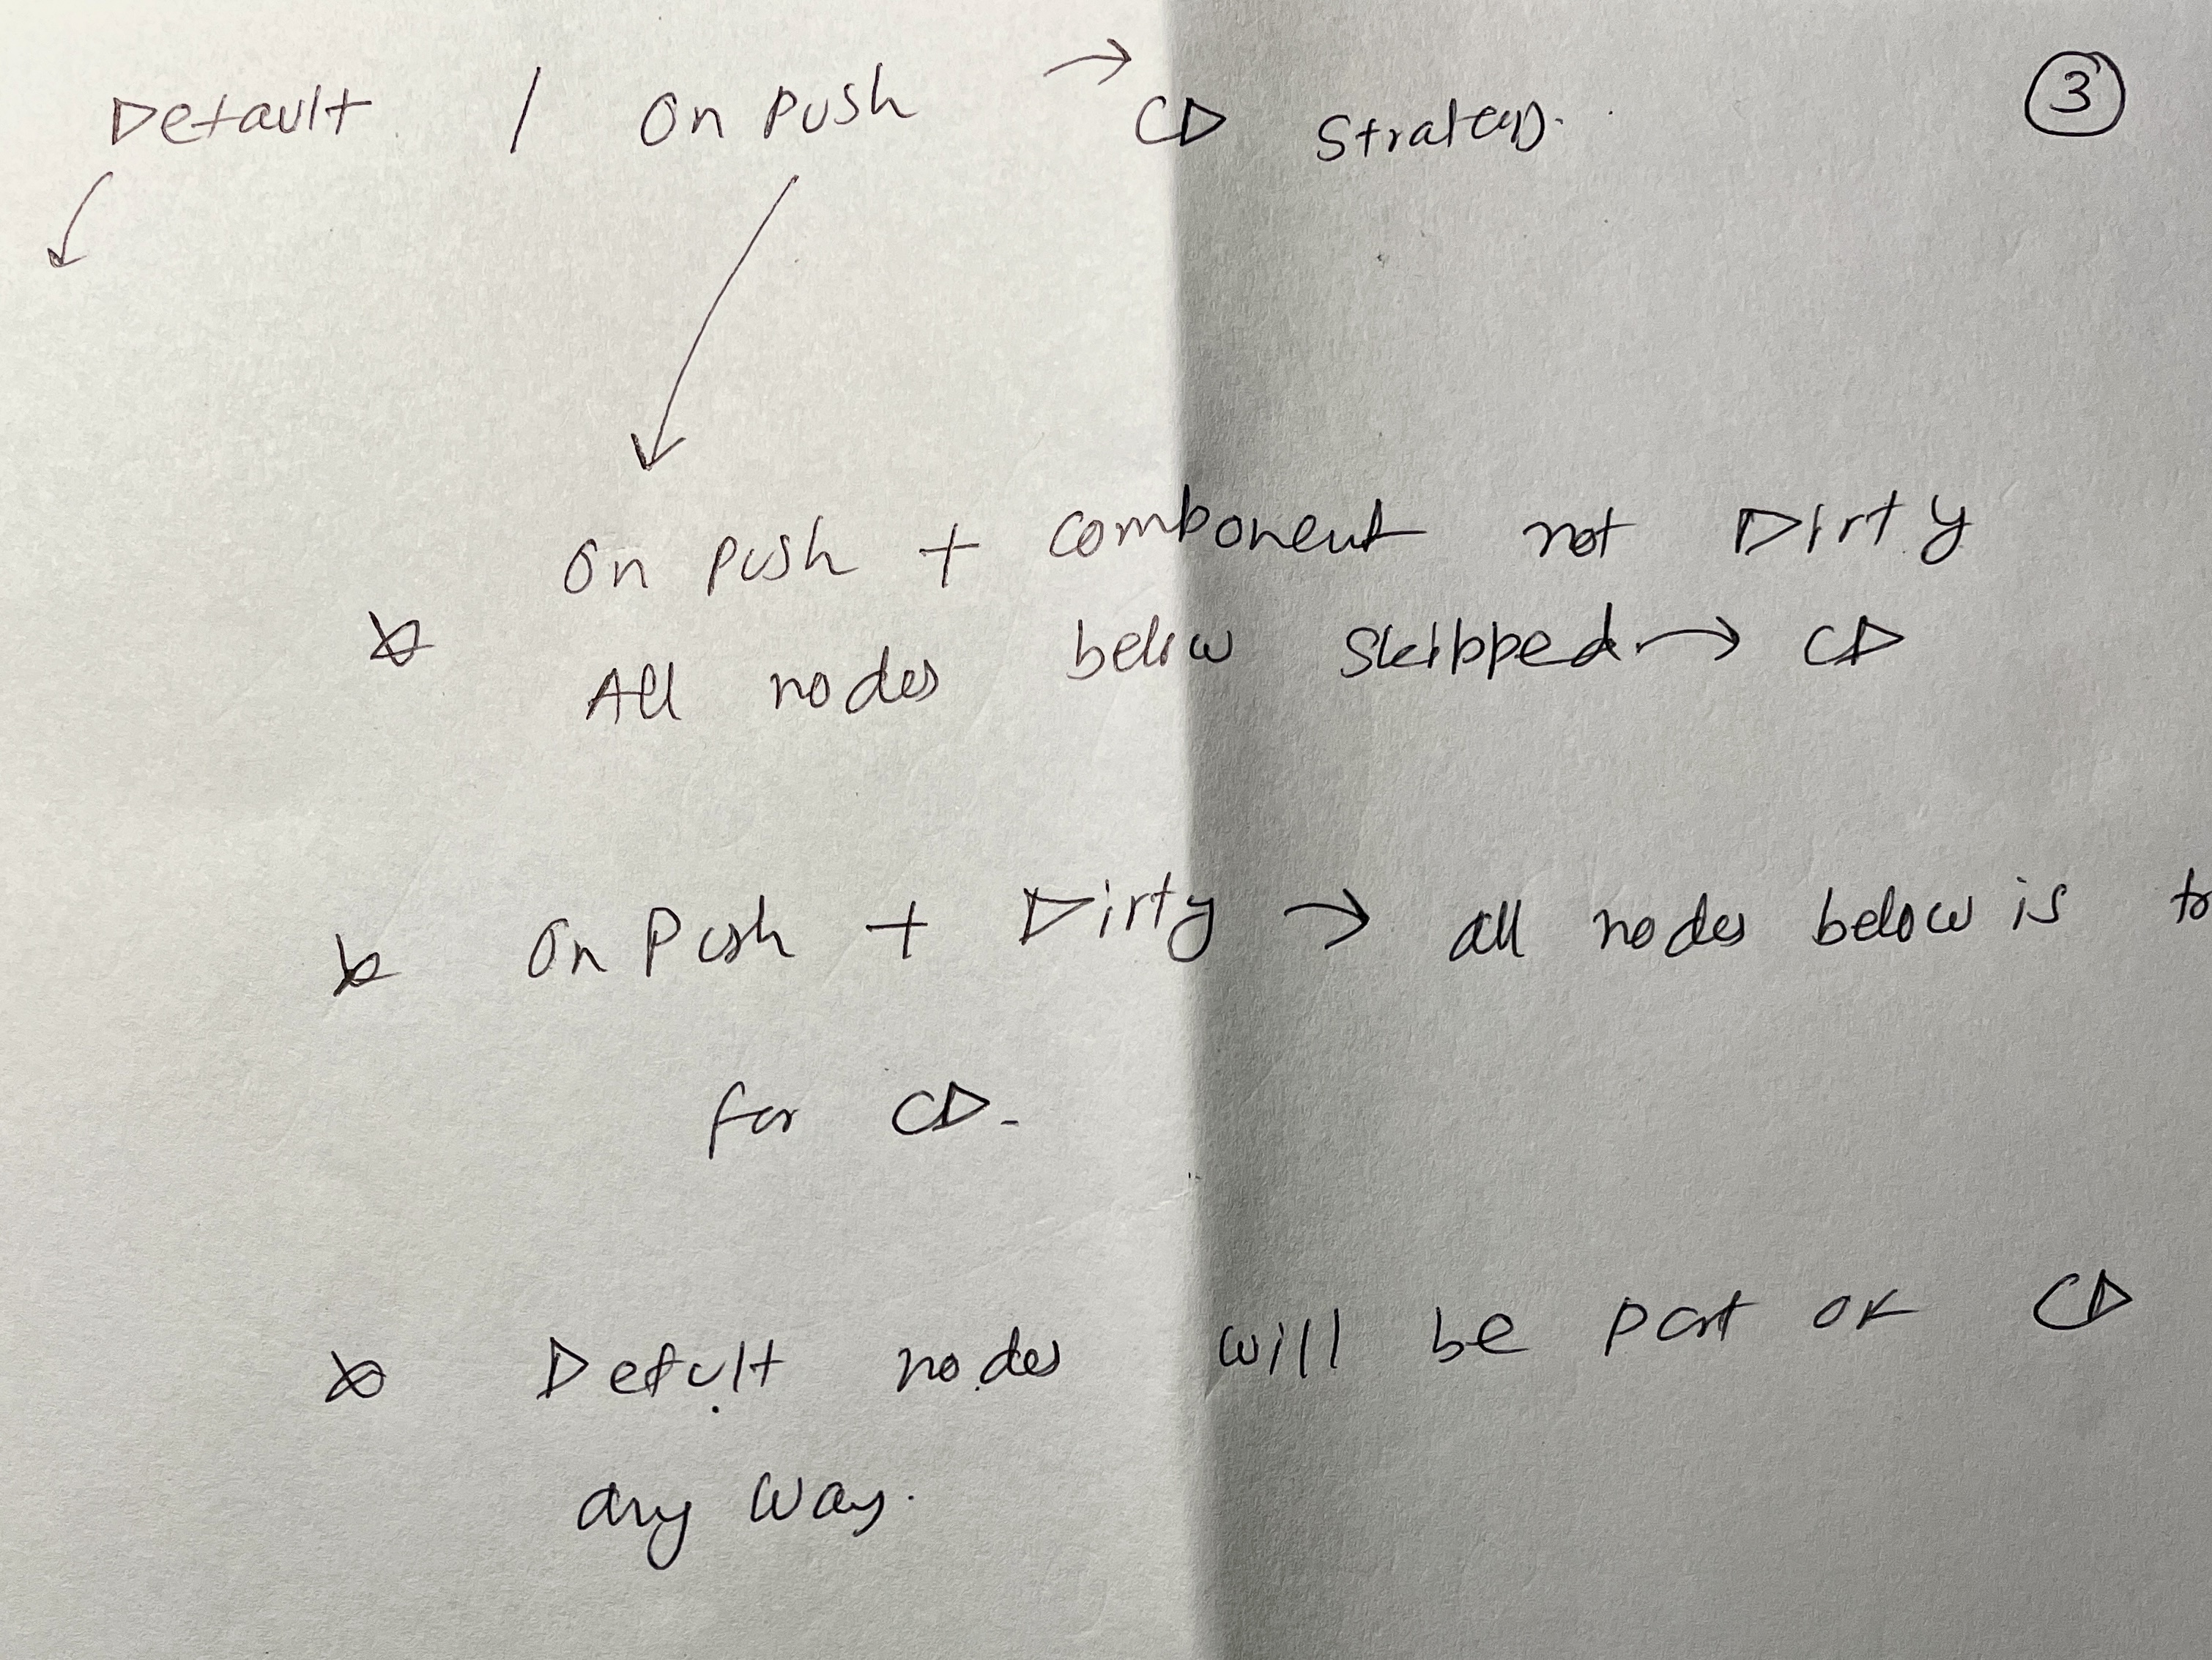 Default / On Push → CD Strategy. ③
On Push + component not Dirty
All nodes below Skipped → CD
On Push + Dirty → all nodes below is
for CD.
Defult nodes will be part of CD
any way.